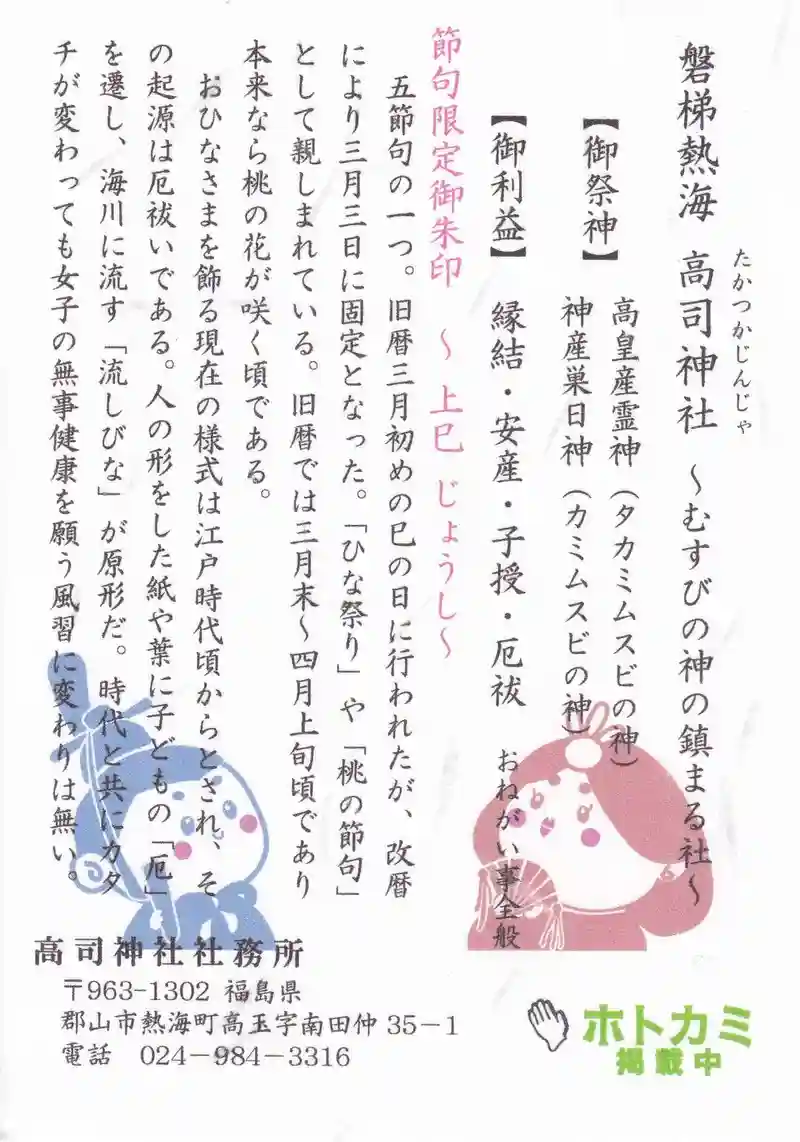 たかつかじんじゃ
磐梯熱海 高司神社 〜むすびの神の鎮まる社〜
【御祭神】
高皇産霊神(タカミムスビの神)
神産巣日神(カミムスビの神)
【御利益】 縁結・安産・子授・厄祓 おねがい事全般
節句限定御朱印 〜上巳 じょうし〜
五節句の一つ。旧暦三月初めの巳の日に行われたが、改暦
により三月三日に固定となった。「ひな祭り」や「桃の節句」
として親しまれている。旧暦では三月末〜四月上旬頃であり
本来なら桃の花が咲く頃である。
おひなさまを飾る現在の様式は江戸時代頃からとされ、そ
の起源は厄祓いである。人の形をした紙や葉に子どもの「厄」
を遷し、海川に流す「流しびな」が原形だ。時代と共にカタ
チが変わっても女子の無事健康を願う風習に変わりは無い。
高司神社社務所
〒963-1302 福島県
郡山市熱海町高玉字南田仲35-1
電話 024-984-3316
ホトカミ
掲載中